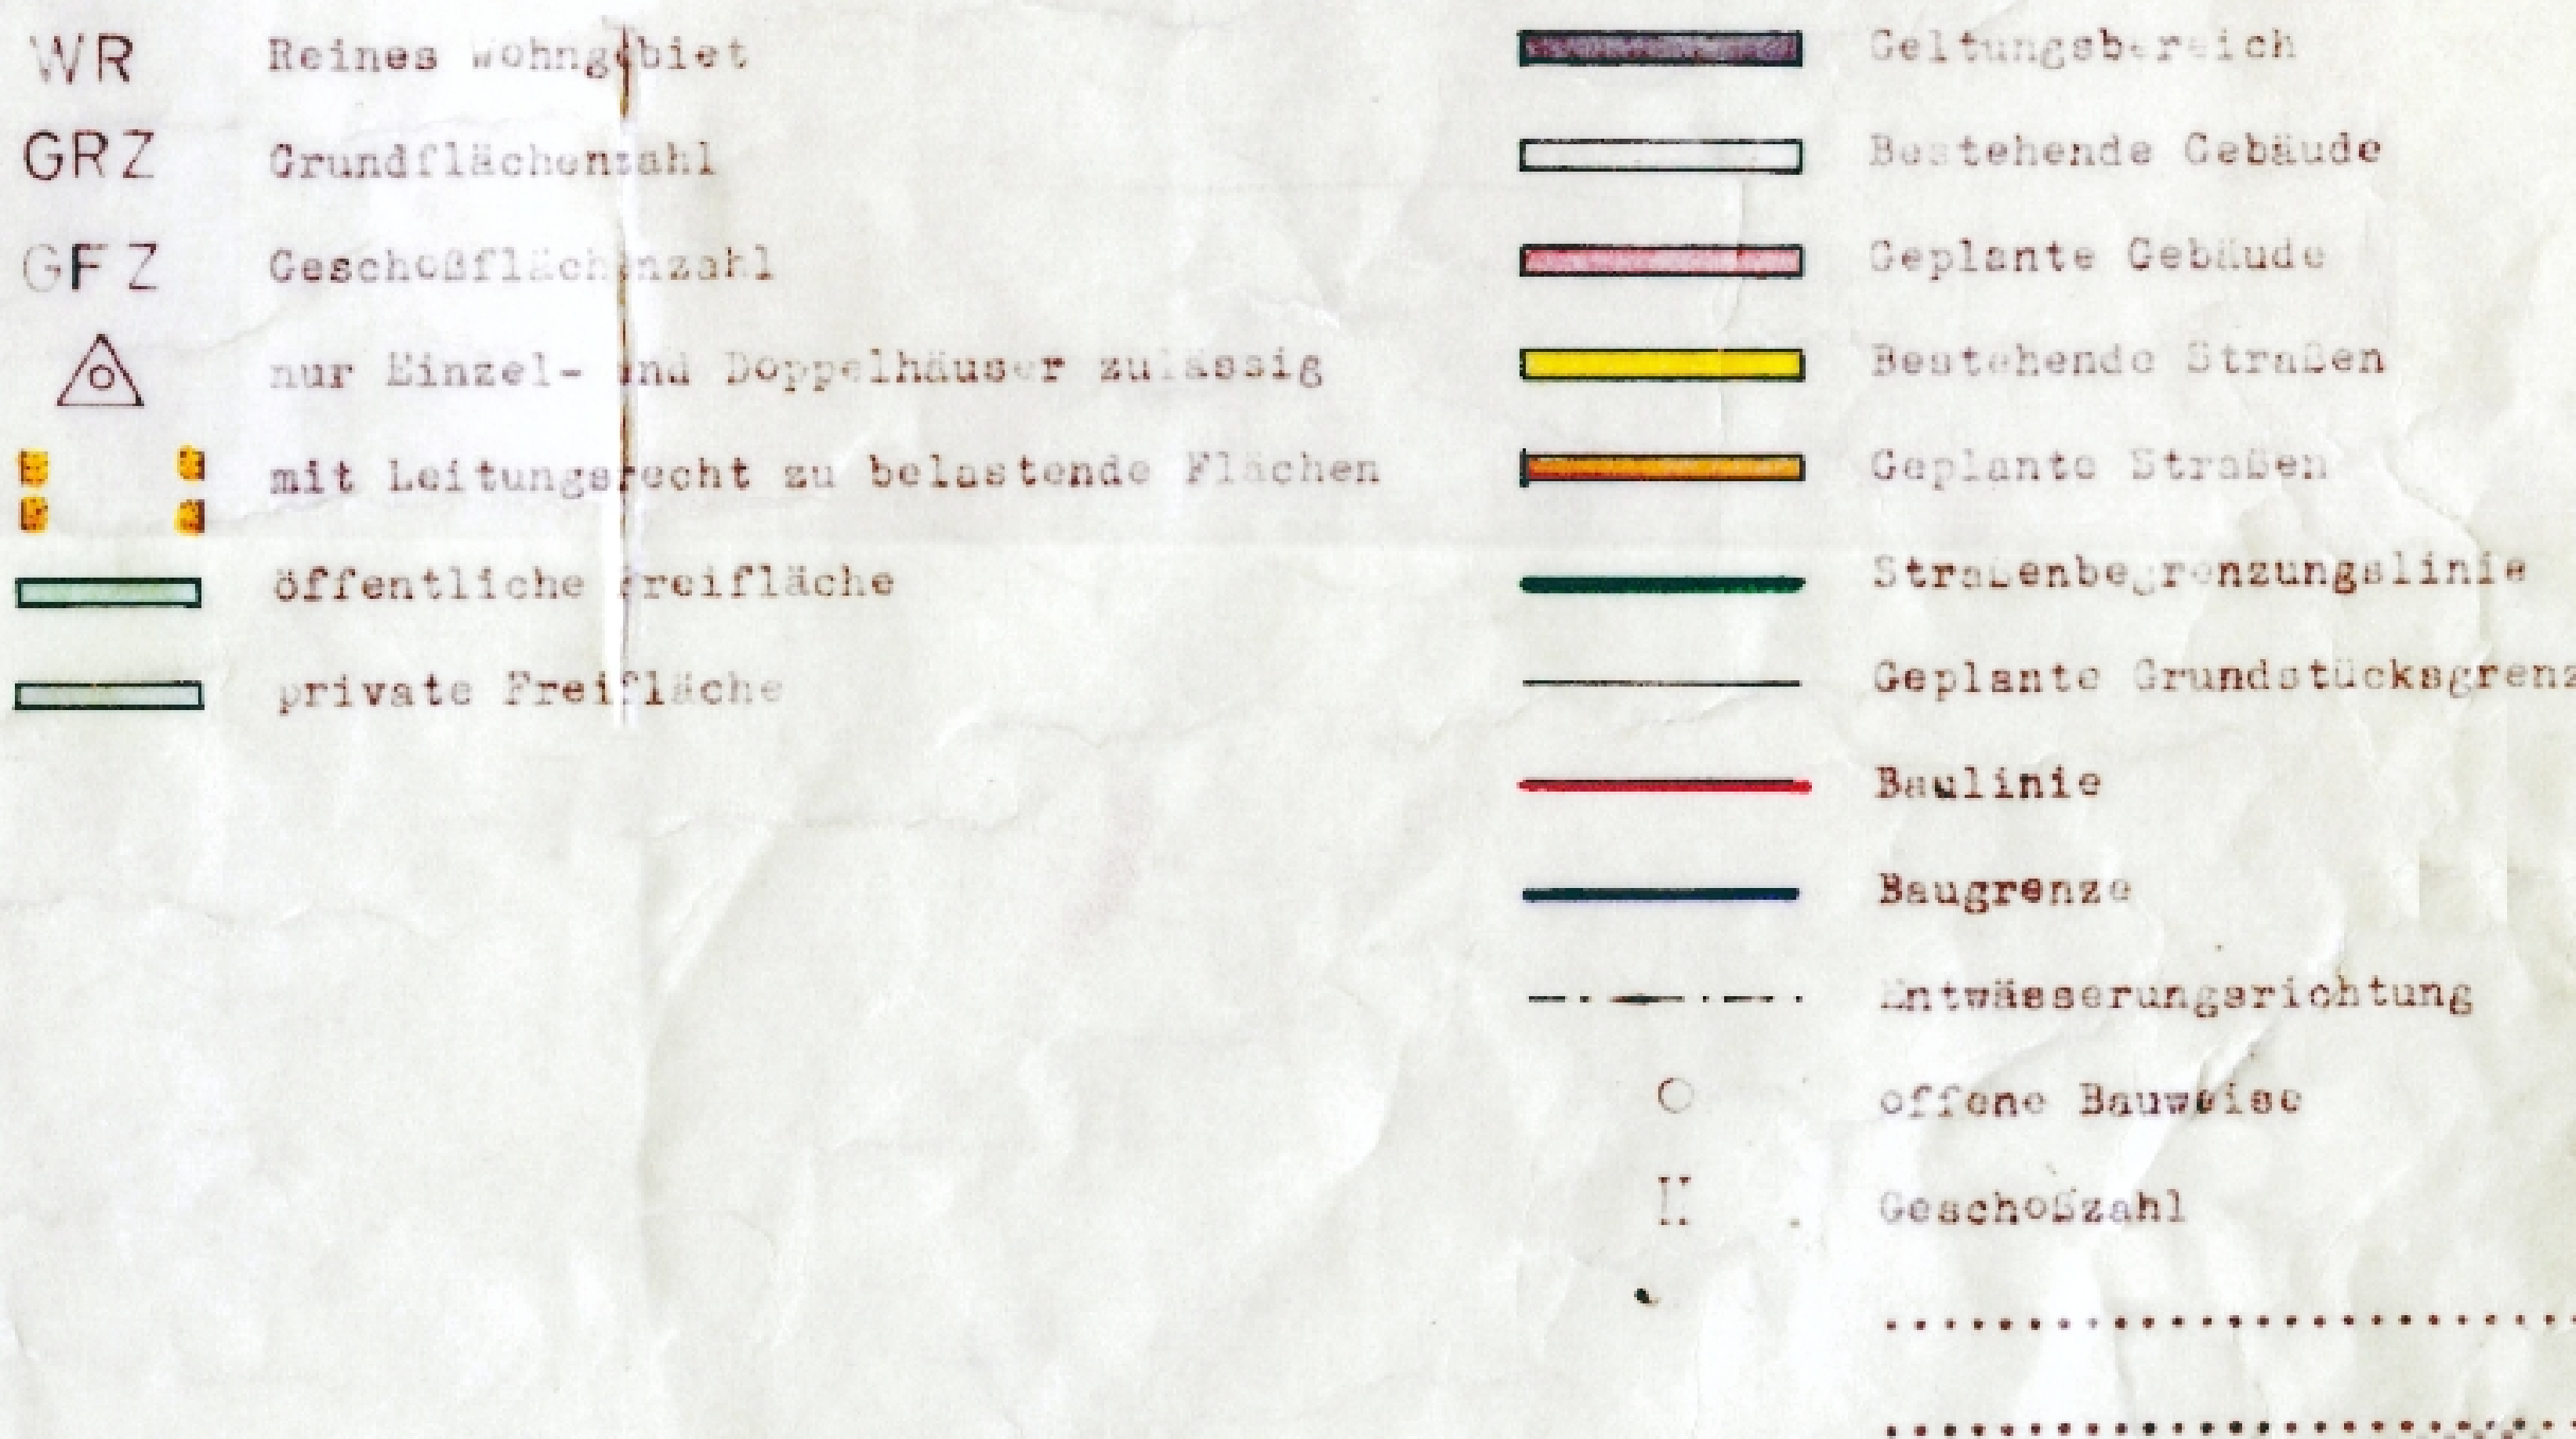 WR Reines Wohngebiet
GRZ Grundflächenzahl
GFZ Geschoßflächenzahl
nur Einzel- und Doppelhäuser zulässig
mit Leitungsrecht zu belastende Flächen
öffentliche Freifläche
private Freifläche
Geltungsbereich
Bestehende Gebäude
Geplante Gebäude
Bestehende Straßen
Geplante Straßen
Straßenbegrenzungslinie
Geplante Grundstücksgrenz
Baulinie
Baugrenze
Entwässerungsrichtung
o offene Bauweise
II Geschoßzahl